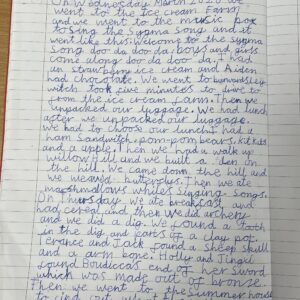 On Wednesday March 2020 we
went to the ice cream Farm
and we went to the music box
to sing the sygma song and it
went like this: Welcome to the sygma
song doo da doo da, boys and girls
come along doo da doo da. I had
an strawberry ice cream and Aiden
had chocolate. We went to
witch took five minutes to drive to
from the ice cream Farm. Then we
unpacked our luggage. We had lunch
after we unpacked our luggage.
we had to choose our lunch i had a
ham Sandwitch, pom-pom bears, kitkats
and a apple. Then we had a walk up
Willow Hill and we built a den on
the hill. We came down the hill and
we weaved butterflys. Then we ate
marshmallows whiles Singing Songs.
On Thursday we ate breakfast and
had cereal and then we did archery
and we did a dig. We found a tooth
in the dig and parts of a clay pot.
and Jack found a sheep skull
and a arm bone. Holly and
found Boudiccas end of her Sword
which was made out of bronze.
Then we went to the Summer house
to find out